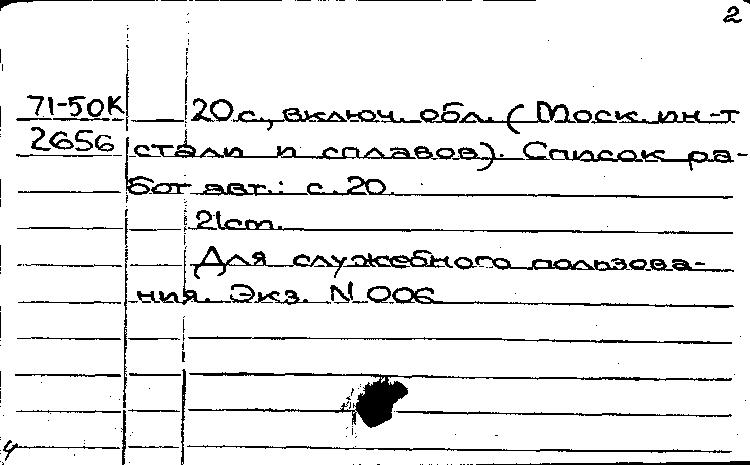 2
71-50К 20 с., включ. обл. (Моск. ин-т
2656 стали и сплавов). Список ра-
бот авт.: с. 20.
21 cm.
Для служебного пользова-
ния. Экз. N 006
4